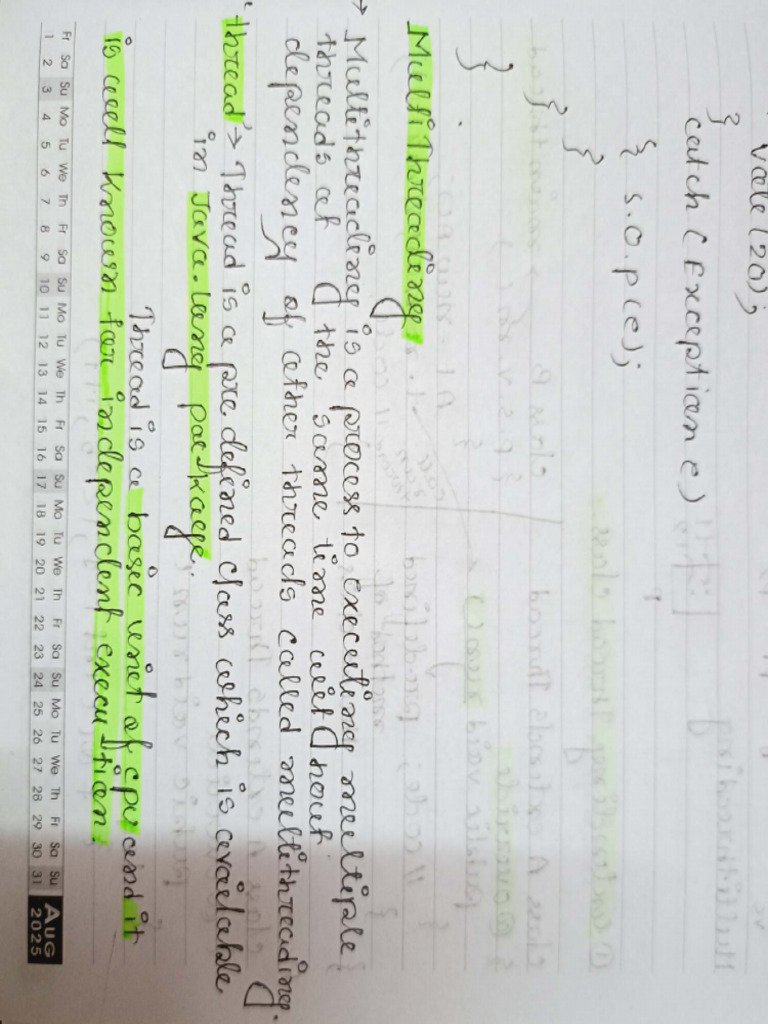 vale(20);
}
catch(Exception e)
{ S.O.P(e);
}
}
}
MultiThreading
→ Multithreading is a process to executing multiple
threads at the same time without
dependency of other threads called multithreading.
• thread → Thread is a pre defined class which is available
in Java.lang package.
Thread is a basic unit of cpu and it
is well known for independent execution.
Fr Sa Su Mo Tu We Th Fr Sa Su Mo Tu We Th Fr Sa Su Mo Tu We Th Fr Sa Su Mo Tu We Th Fr Sa Su
1 2 3 4 5 6 7 8 9 10 11 12 13 14 15 16 17 18 19 20 21 22 23 24 25 26 27 28 29 30 31
AUG
2025